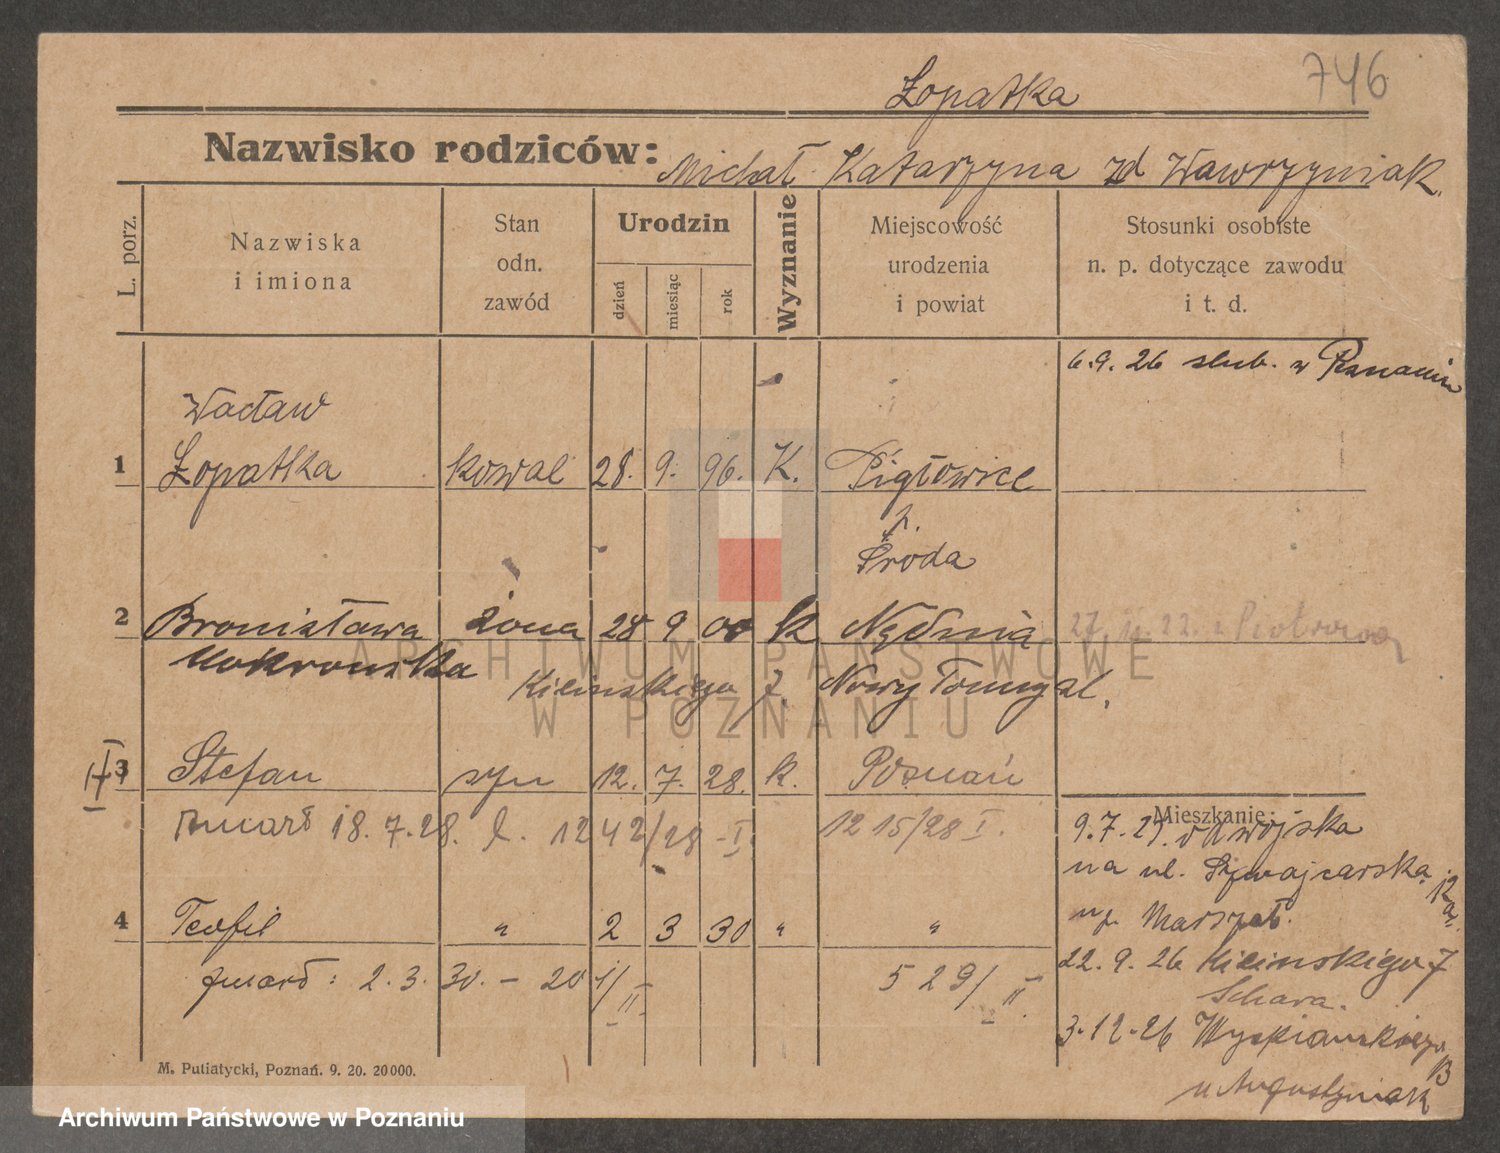 746
Łopatka
Nazwisko rodziców: Michał Katarzyna zd Wawrzyniak
L. porz.
Nazwiska
i imiona
Stan
odn.
zawód
Urodzin
dzień
miesiąc
rok
Wyznanie
Miejscowość
urodzenia
i powiat
Stosunki osobiste
n. p. dotyczące zawodu
i t. d.
6.9.26 slub. w Poznaniu
Wacław
1 Łopatka kowal 28. 9. 96. K. Pigłowice
p.
Środa
2 Bronisława żona 28 9 00 k Nądnia
27. 22. Piotrowo
Mokrowska Kilińskiego 7. Nowy Tomyśl.
3 Stefan syn 12. 7. 28. k. Poznań
zmarł 18.7.28. l. 1242/28 I. 1215/28 I.
4 Teofil " 2 3 30 " "
zmarł: 2.3.30. – 201/II 529/II.
Mieszkanie:
9.7.21. od wojska
na ul. Szwajcarska 12a.
up. Marszał.
22.9.26 Kilińskiego 7
Schara.
3.12.26 Wyspiańskiego 13
u Augustyniak
M. Putiatycki, Poznań. 9. 20. 20000.
ARCHIWUM PAŃSTWOWE
W POZNANIU
Archiwum Państwowe w Poznaniu